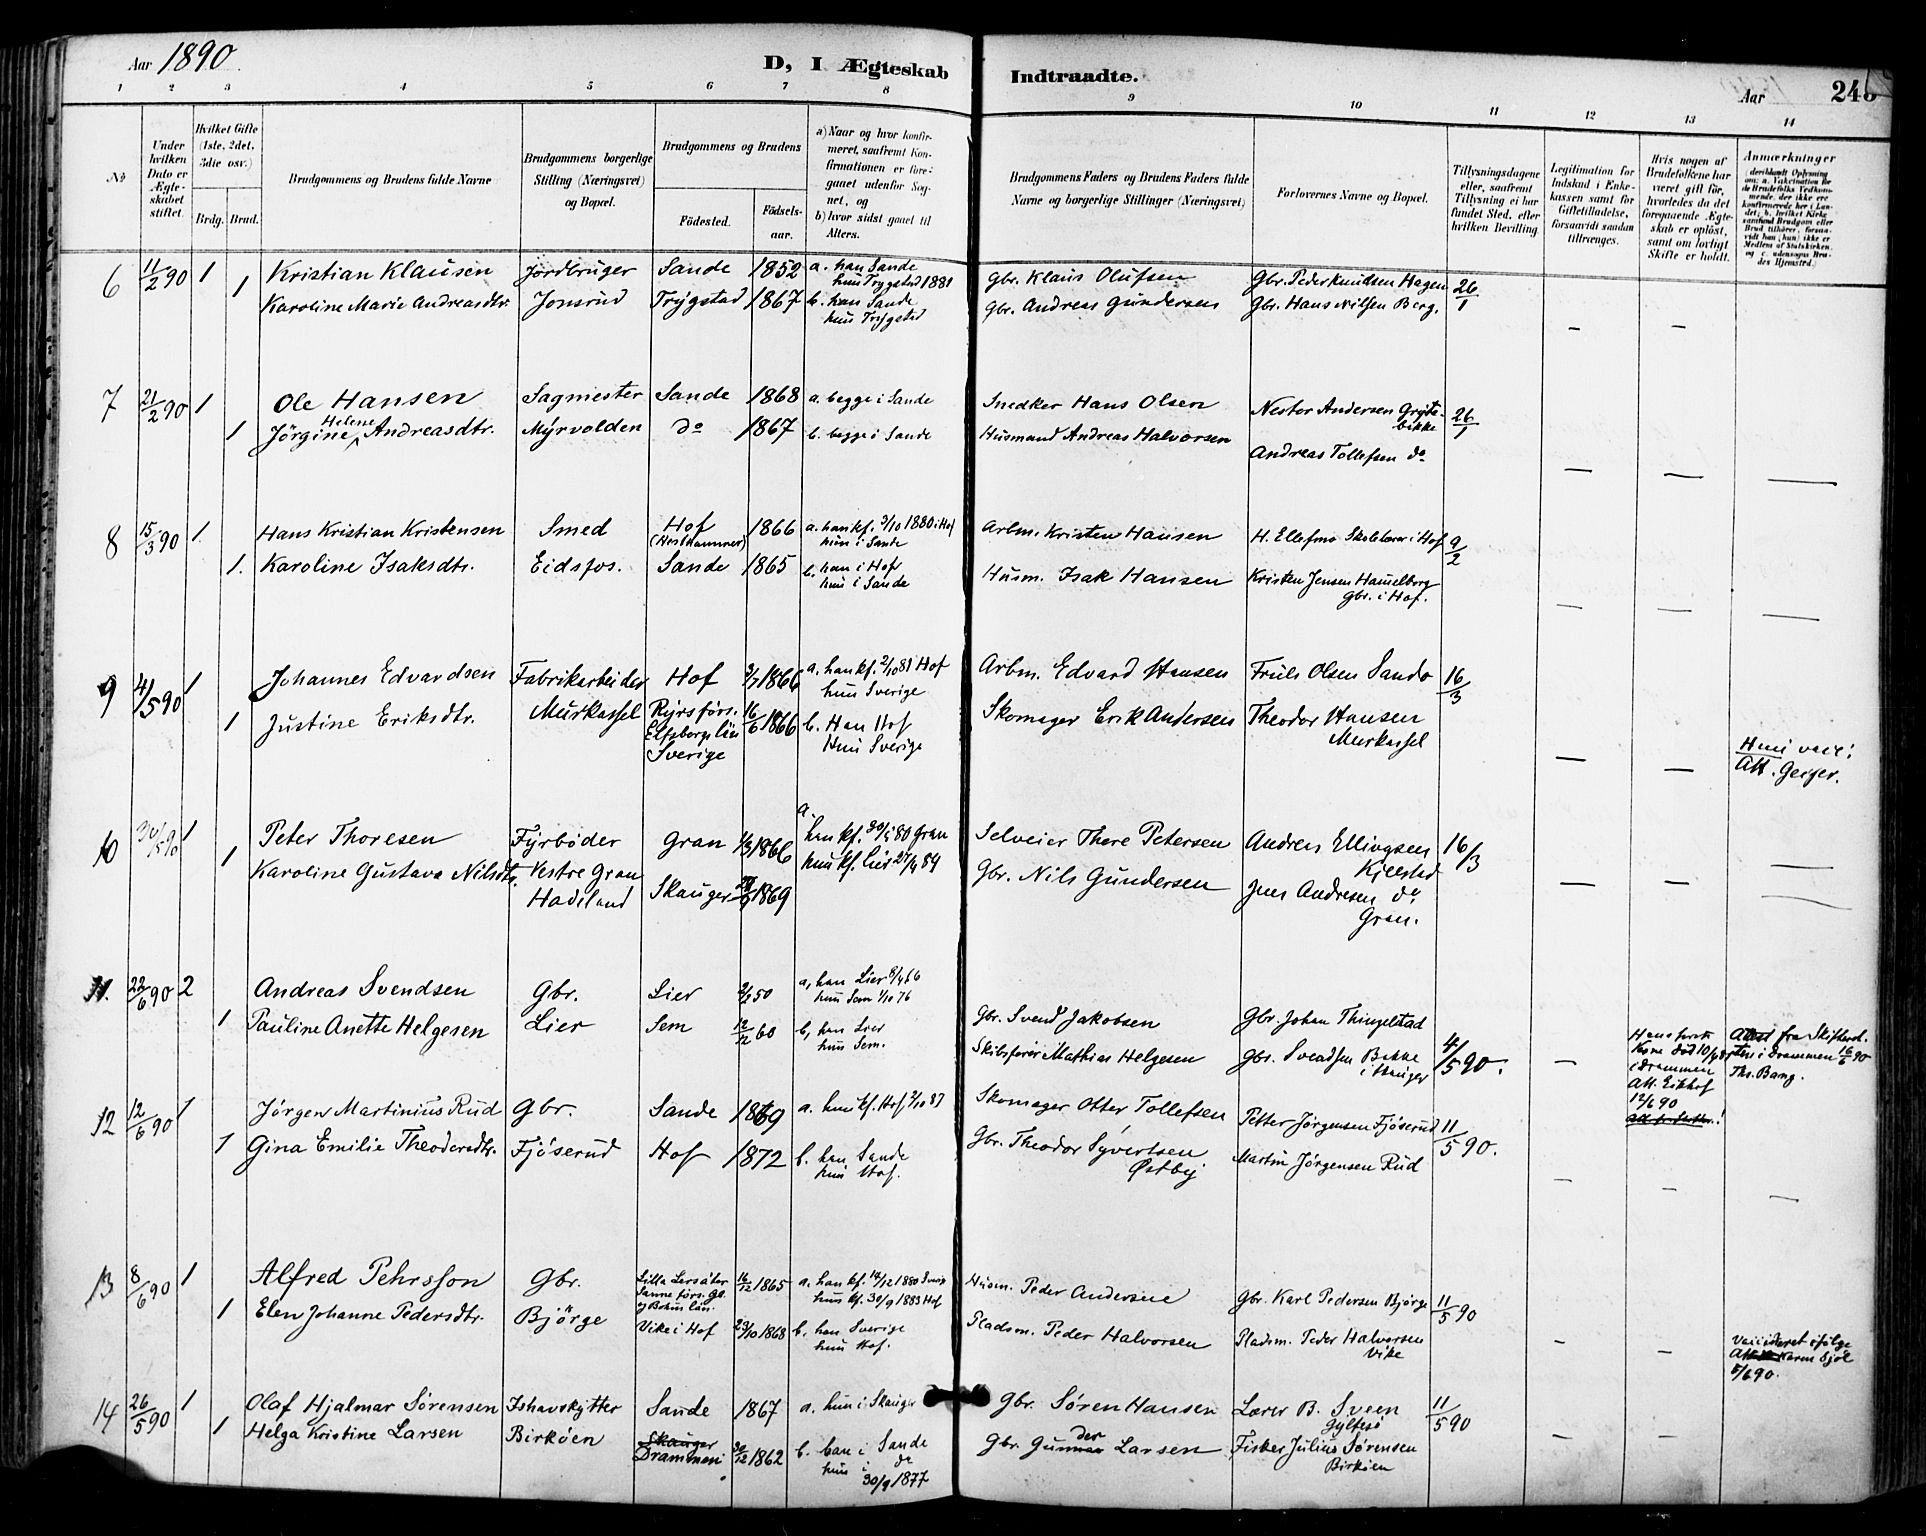 Aar 1890.
D, I Ægteskab Indtraadte.
Aar
1 2 3 4 5 6 7 8 9 10 11 12 13 14
№
Under hvilken Dato er Ægteskabet stiftet.
Hvilket Gifte (1ste, 2det, 3die osv.)
Brdg. Brud.
Brudgommens og Brudens fulde Navne
Brudgommens borgerlige Stilling (Næringsvei) og Bopæl.
Brudgommens og Brudens
Fødested.
Fødselsaar.
a) Naar og hvor konfirmeret, saafremt Konfirmationen er foregaaet udenfor Sognet, og
b) hvor sidst gaaet til Alters.
Brudgommens Faders og Brudens Faders fulde Navne og borgerlige Stillinger (Næringsvei)
Forlovernes Navne og Bopæl.
Tillysningsdagene eller, saafremt Tillysning ei har fundet Sted, efter hvilken Bevilling.
Legitimation for Indskud i Enkekassen samt for Giftetilladelse, forsaavidt saadan tiltrænges.
Hvis nogen af Brudefolkene har været gift før, hvorledes da det foregaaende Ægteskab er opløst, samt om lovligt Skifte er holdt.
Anmærkninger
6 11/2 90 1 Kristian Klausen Jordbruger Sande 1852 a. han Sande Gbr. Klaus Olufsen Gbr. Peder Knudsen Hagen 26/1
hun Trygstad 1881
1 Karoline Marie Andreasdtr. Jonsrud Trygstad 1867 b. han Sande Gbr. Andreas Gundersen Gbr. Hans Nilsen Berg. – –
hun Trygstad
7 21/2 90 1 Ole Hansen Sagmester Sande 1868 a. begge i Sande Snedker Hans Olsen Nestor Andersen Grytebikke 26/1
1 Jörgine Helene Andreasdtr. Myrvolden do 1867 b. begge i Sande Husmand Andreas Halvorsen Andreas Tollefsen do – – –
8 15/3 90 1. Hans Kristian Kristensen Smed Hof 1866 a. han kf. 3/10 1880 i Hof Arbm. Kristen Hansen H. Ellefmo Skolelærer i Hof 9/2
hun i Sande
1. Karoline Isaksdtr. Eidsfos. Sande 1865 b. han i Hof Husm. Isak Hansen Kristen Jensen Hasselberg
hun i Sande gbr. i Hof. – – –
9 4/5 90 1 Johannes Edvardsen Fabrikarbeider Hof 3/7 1866 a. han kf. 2/10 81 Hof Arbm. Edvard Hansen Olsen Sande 16/3
hun Sverige
1 Justine Eriksdtr. Murkassel 16/6 1866 b. Han Hof Skomager Erik Andersen Theodor Hansen
Elfsborgs län Hun Sverige Murkassel
Sverige – – Att.
10 1 Peter Thoresen Fyrbøder Gran 1/3 1866 a. han kf. 80 Gran Selveier Thore Petersen Andreas Ellingsen 16/3
Kjelstad
1 Karoline Gustava Nilsdtr. Vestre Gran Skauger 1869 hun kf. Lier 84 Gbr. Nils Gundersen Jens Andresen do
Hadeland Gran. – – –
11. 22/6 90 2 Andreas Svendsen Gbr. Lier 50 a, han Lier 8/4 66 Gbr. Svend Jakobsen Gbr. Johan Thingelstad 4/5 90.
hun Sem 1/10 76
1 Pauline Anette Helgesen Lier Sem 12/2 60 b, han Lier Skibsfører Mathias Helgesen Gbr. Svendsen Bikke –
hun Sem. i Skauger
Hans første
Kone død
i Drammen
Att.
12/6 90
fra
i Drammen 16/6 90
Ths. Bang.
12 12/6 90 1 Jørgen Martinius Rud Gbr. Sande 1869 a. hun kf. Hof 2/10 87 Skomager Otter Tollefsen Petter Jørgensen Fjøserud 11/5 90.
1 Gina Emilie Theodorsdtr. Fjöserud Hof 1872 b. han Sande Gbr. Theodor Syvertsen Martin Jørgensen Rud
hun Hof. Østby – – –
13 8/6 90 1 Alfred Pehrsson Gbr. Lilla 16/12 1865 a. han kf. 14/12 1880 Husm. Peder Andersen Gbr. Karl Pedersen Bjørge 11/5 90
og Bohus län. hun kf. 30/9 1883 Hof
1 Elen Johanne Pedersdtr. Björge Vike i Hof 23/10 1868 b. han Sverige Pladsm. Peder Halvorsen Pladsm. Peder Halvorsen
hun Hof. Vike – –
14 26/5 90 1 Olaf Hjalmar Sørensen Ishavskytter Sande 1867 a. hun i Skauger Gbr. Søren Hansen Lærer B. Sveen 11/5 90
1 Helga Kristine Larsen Birköen Skauger 30/12 1862 b. han i Sande Gbr. Gunder Larsen Fisker Julius Sørensen
Drammen hun i do Birköen – –
30/9 1877